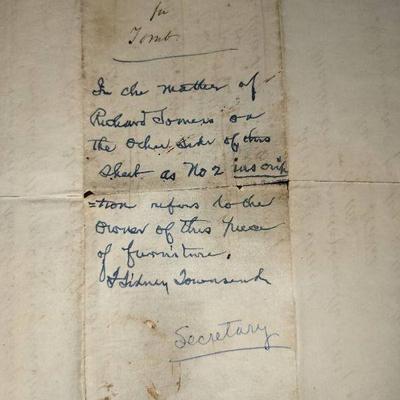 for
Tomb
In the matter of
Richard Somers on
the other side of this
sheet as No 2 inscrip
=tion refers to the
owner of this piece
of furniture.
J Sidney Townsend
Secretary